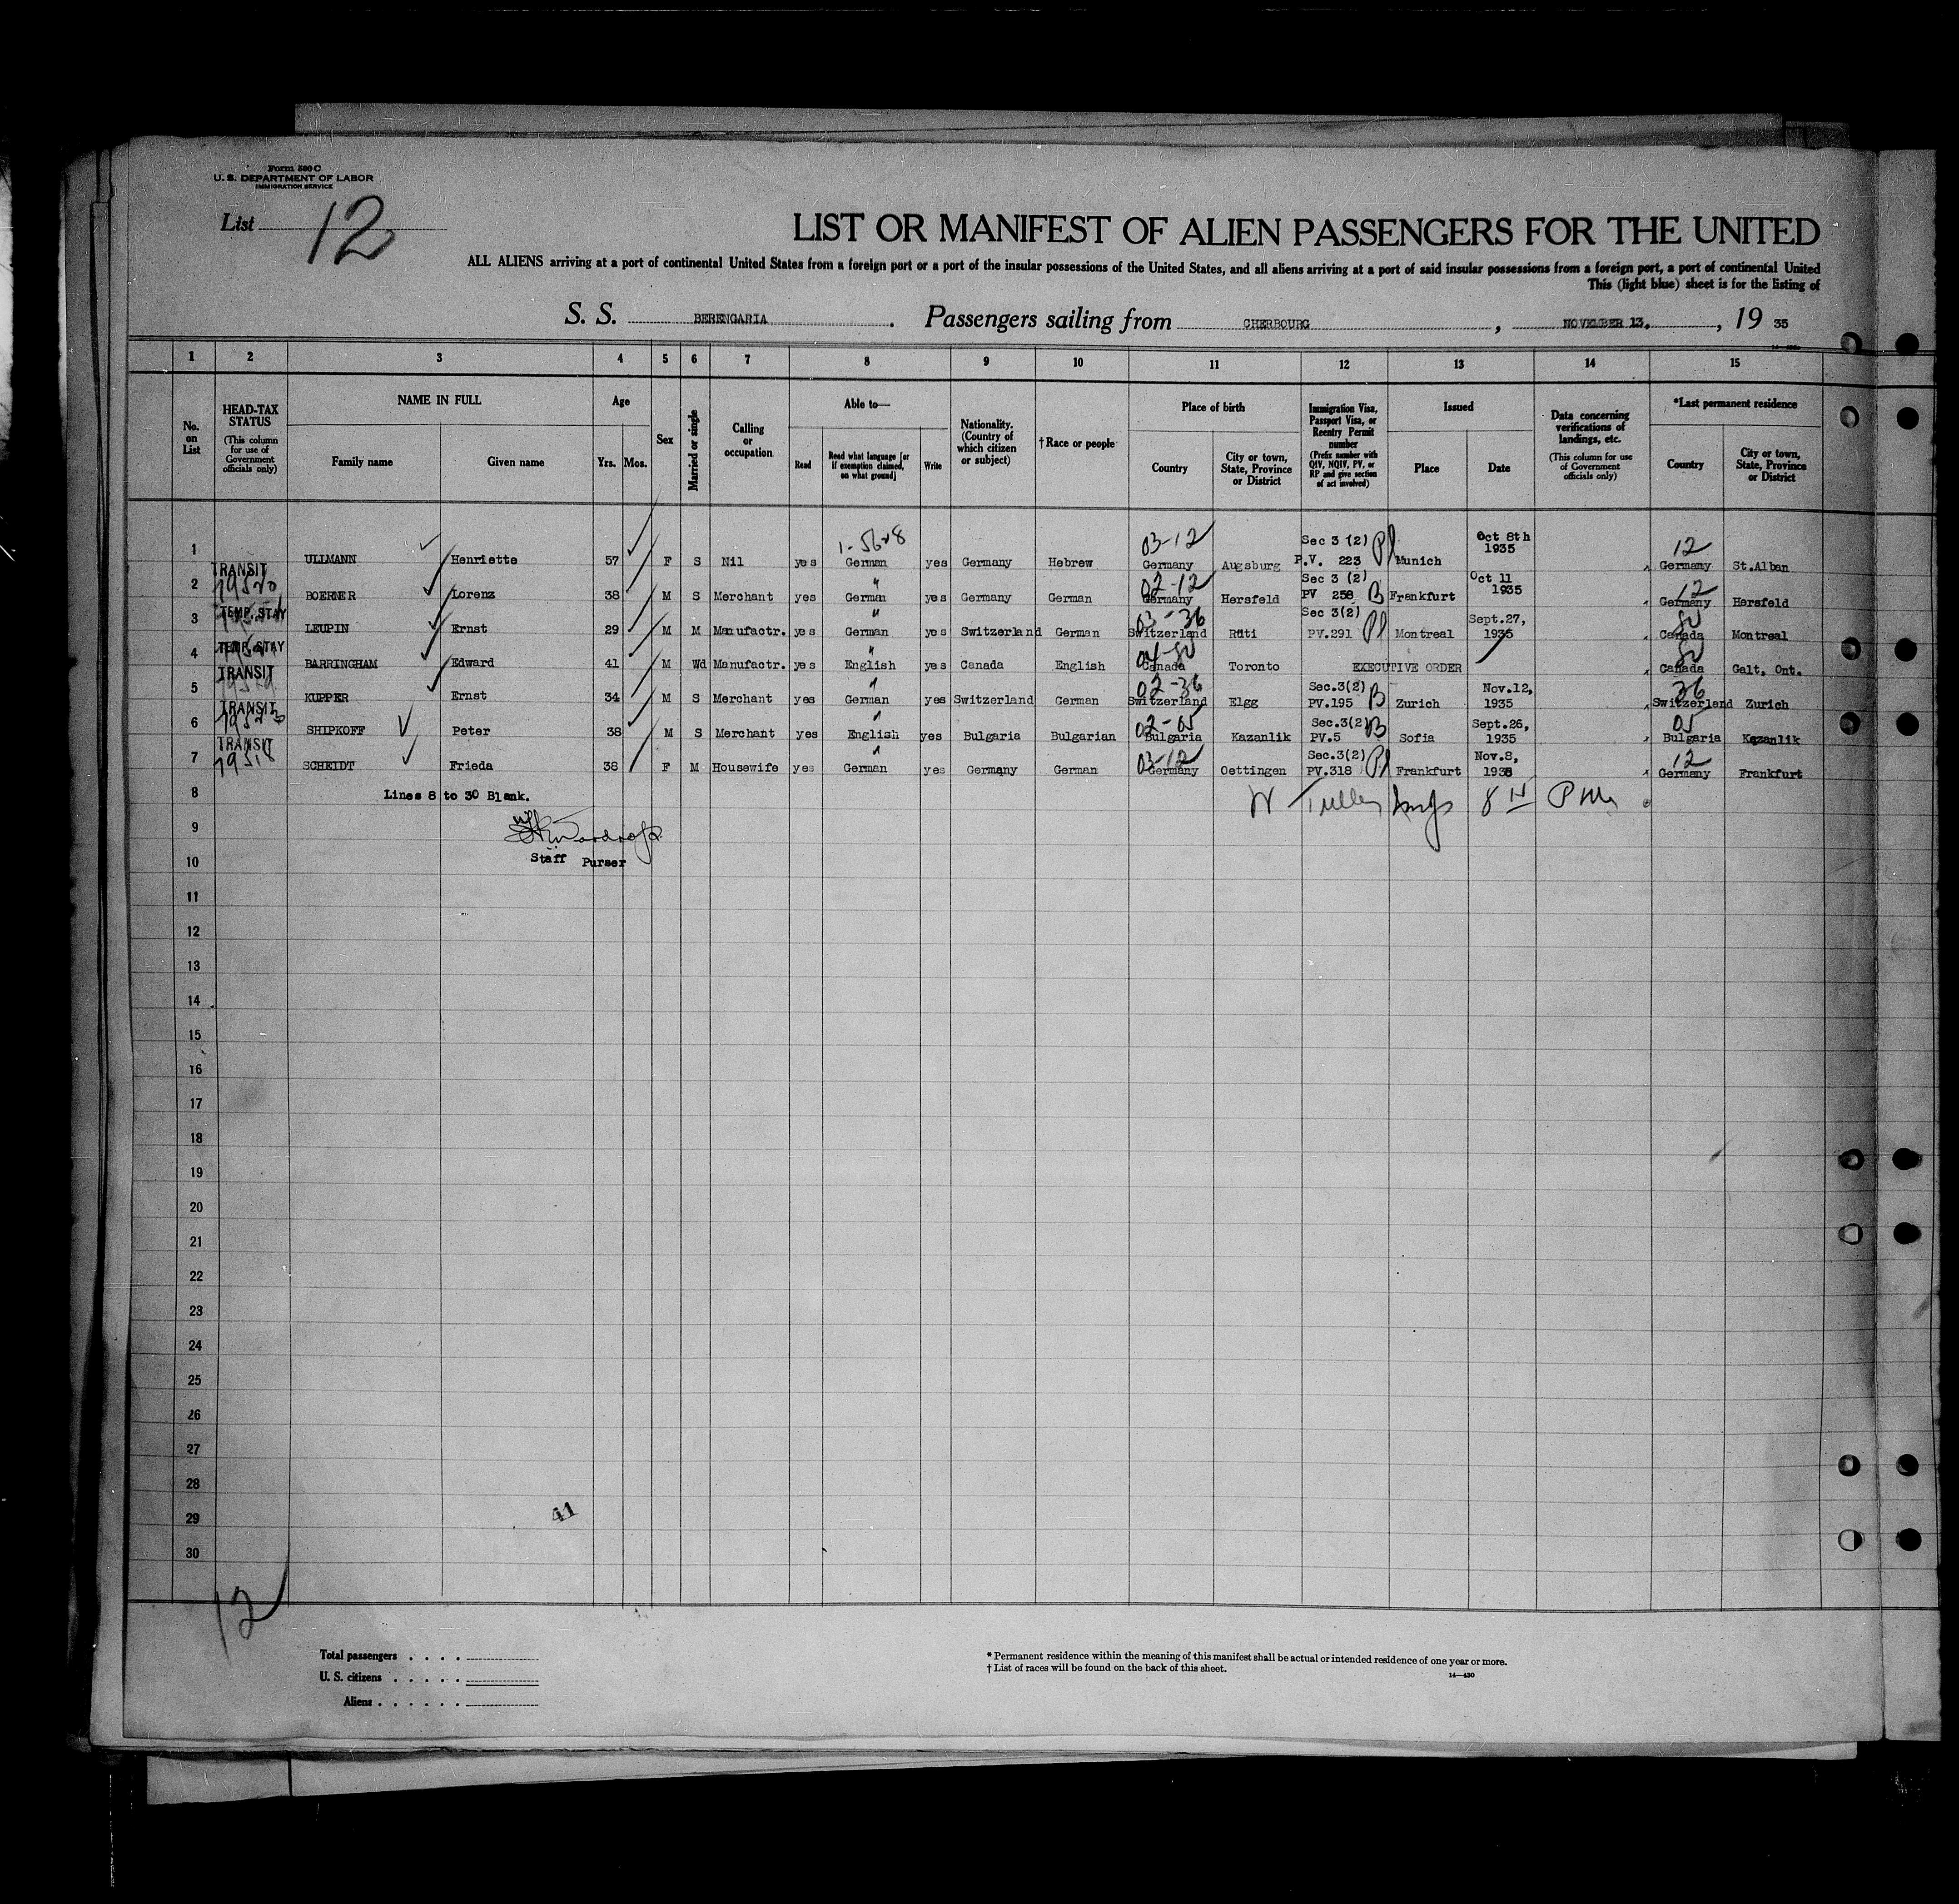 Form 500 C
U. S. DEPARTMENT OF LABOR
IMMIGRATION SERVICE
List 12
LIST OR MANIFEST OF ALIEN PASSENGERS FOR THE UNITED
ALL ALIENS arriving at a port of continental United States from a foreign port or a port of the insular possessions of the United States, and all aliens arriving at a port of said insular possessions from a foreign port, a port of continental United
This (light blue) sheet is for the listing of
S. S. BERENGARIA. Passengers sailing from CHERBOURG, NOVEMBER 13., 19 35
1 2 3 4 5 6 7 8 9 10 11 12 13 14 15
No. on List
HEAD-TAX STATUS (This column for use of Government officials only)
NAME IN FULL
Family name Given name
Age
Yrs. Mos.
Sex
Married or single
Calling or occupation
Able to—
Read Read what language [or if exemption claimed, on what ground] Write
Nationality. (Country of which citizen or subject)
† Race or people
Place of birth
Country City or town, State, Province or District
Immigration Visa, Passport Visa, or Reentry Permit number (Prefix number with QIV, NQIV, PV, or RP and give section of act involved)
Issued
Place Date
Data concerning verifications of landings, etc. (This column for use of Government officials only)
*Last permanent residence
Country City or town, State, Province or District
1 ULLMANN Henriette 57 F S Nil yes German yes Germany Hebrew 03-12 Germany Augsburg Sec 3 (2) P.V. 223 Munich Oct 8th 1935 12 Germany St.Alban
TRANSIT
2 BOERNER Lorenz 38 M S Merchant yes German yes Germany German 02-12 Germany Hersfeld Sec 3 (2) PV 258 B Frankfurt Oct 11 1935 12 Germany Hersfeld
TEMP. STAY
3 LEUPIN Ernst 29 M M Manufactr. yes German yes Switzerland German 03-36 Switzerland Rüti Sec 3(2) PV.291 Montreal Sept.27, 1935 Canada Montreal
TEMP. STAY
4 BARRINGHAM Edward 41 M Wd Manufactr. yes English yes Canada English Canada Toronto EXECUTIVE ORDER Canada Galt, Ont.
TRANSIT
5 KUPPER Ernst 34 M S Merchant yes German yes Switzerland German 02-36 Switzerland Elgg Sec.3(2) PV.195 B Zurich Nov.12, 1935 36 Switzerland Zurich
TRANSIT
6 SHIPKOFF Peter 38 M S Merchant yes English yes Bulgaria Bulgarian 02-05 Bulgaria Kazanlik Sec.3(2) PV.5 B Sofia Sept.26, 1935 05 Bulgaria Kazanlik
TRANSIT
7 SCHEIDT Frieda 38 F M Housewife yes German yes Germany German 03-12 Germany Oettingen Sec.3(2) PV.318 Frankfurt Nov.8, 1935 12 Germany Frankfurt
8 Lines 8 to 30 Blank.
9
Staff Purser
10
11
12
13
14
15
16
17
18
19
20
21
22
23
24
25
26
27
28
29
41
30
12
Total passengers
U. S. citizens
Aliens
* Permanent residence within the meaning of this manifest shall be actual or intended residence of one year or more.
† List of races will be found on the back of this sheet.
14—430